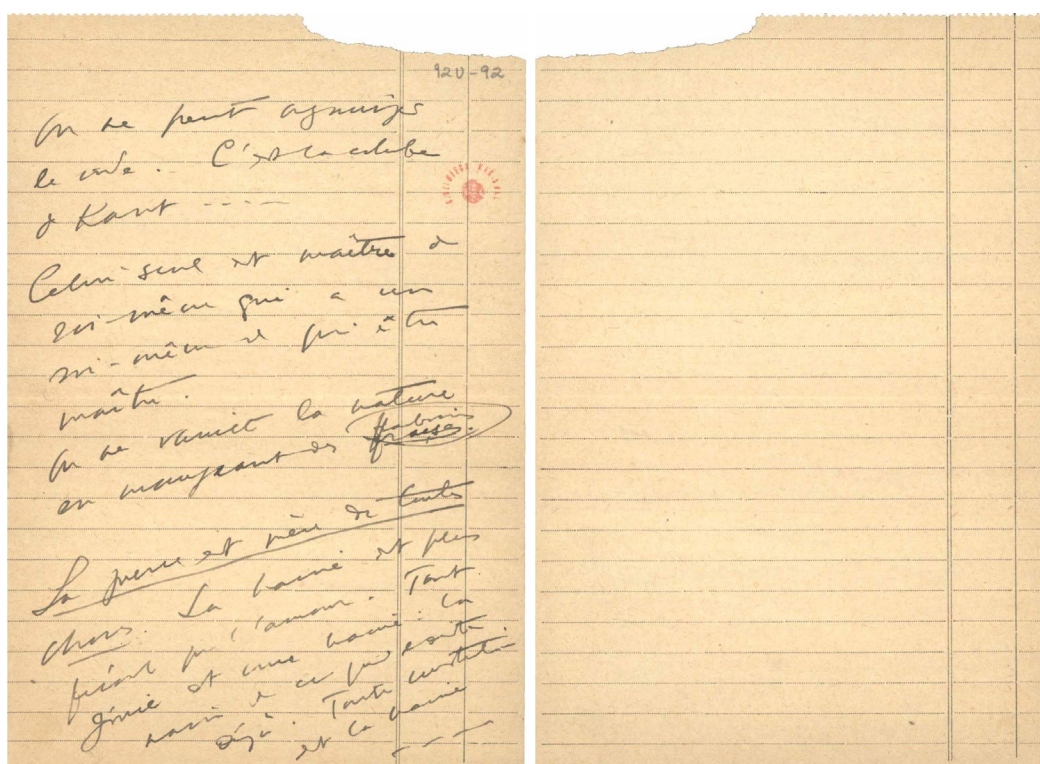 92U-92
On ne peut agenciez
le vide.. C'est la colombe
de Kant ----
Celui seul est maître de
soi-même qui a un
soi-même de qui être
maître.
On ne vainct la nature
en mangeant des fraises.
La guerre est mère de toutes
choses. La haine est plus
que l'amour. Tout
génie est une haine. La
haine de ce qui existe
déjà. Toute
est la haine
----
BIBLIOTECA NACIONAL